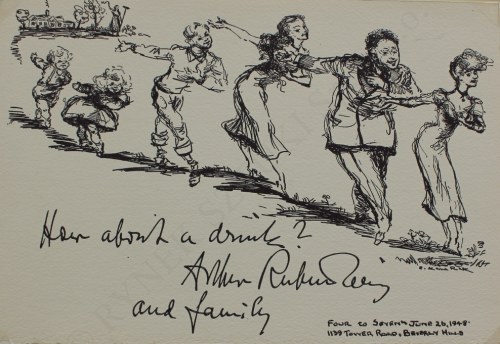 How about a drink?
Arthur Rubinstein
and family
FOUR to SEVEN JUNE 26, 1948
1139 TOWER ROAD, BEVERLY HILLS